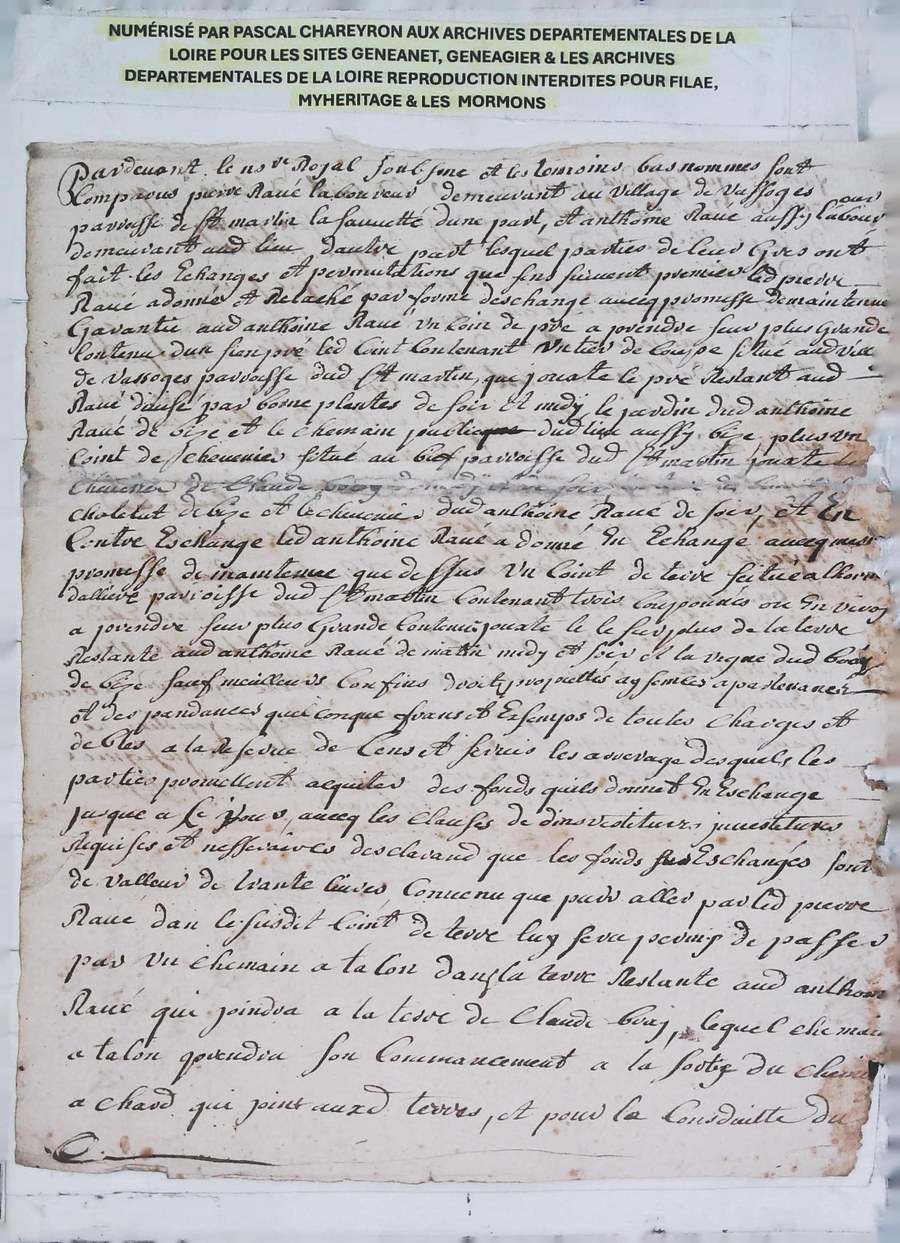 NUMÉRISÉ PAR PASCAL CHAREYRON AUX ARCHIVES DEPARTEMENTALES DE LA
LOIRE POUR LES SITES GENEANET, GENEAGIER & LES ARCHIVES
DEPARTEMENTALES DE LA LOIRE REPRODUCTION INTERDITES POUR FILAE,
MYHERITAGE & LES MORMONS
Pardevant le nore Royal soubsine et les temoins bas nommes sont
Comparus pierre Raué laboureur demeurant au village de Vassoges
parroisse de St martin la sauueté dune part, et anthoine Raué aussy labour
demeurant aud lieu dautre part lesquel parties de leur Gres ont
fait les Echanges et permutations que sen suivent premier led pierre
Raué a donné et Relaché par forme deschange aueq promesse de maintenue
Garantie aud anthoine Raué un Coin de pré a prendre sur plus Grande
Contenu dun sien pré led Coint Contenant un tier de Coupe situé aud ville
de Vassoges parroisse dud St martin, que jouxte le pré Restant aud
Raué diuisé par borne plantes de soir et midy le jardin dud anthoine
Raué de bize et le chemain publique dud lieu aussy bize, plus un
Coint de cheuenier situé au parroisse dud St martin jouxte
cheuenier de Claude
de bize et le cheuenier dud anthoine Raué de soir, et En
Contre Eschange led anthoine Raué a donné En Echange aueq mesme
promesse de maintenue que dessus un Coint de terre situé
parroisse dud St martin Contenant trois Couponnés ou En viron
a prendre sur plus Grande Contenu jouxte le le surplus de la terre
Restante aud anthoine Raué de matin midy et soir et la vigne dud
de bize sauf meilleurs Confins droits proprietes apartenances
et des pandances quelconque frans et Exsemps de toutes charges et
debtes a la Reserue de Cens et seruis les arrerage desquels les
parties promettent acquiter des fonds quils donnet En Eschange
jusque a Ce jour, aueq les Clauses de dinvestitures jnuestitures
Requises et nesseraires desclarand que les fonds Eschangés sont
de valleur de trante liures Conuenu que pour aller par led pierre
Raué dan le susdit Coint de terre luy sera permis de passer
par un chemain a talon dans la terre Restante aud anthoine
Raué qui joindra a la terre de Claude lequel chemain
a talon prendra son Commancement a la sortie du chemain
a chard qui joint auxd terres, et pour la Consduitte du